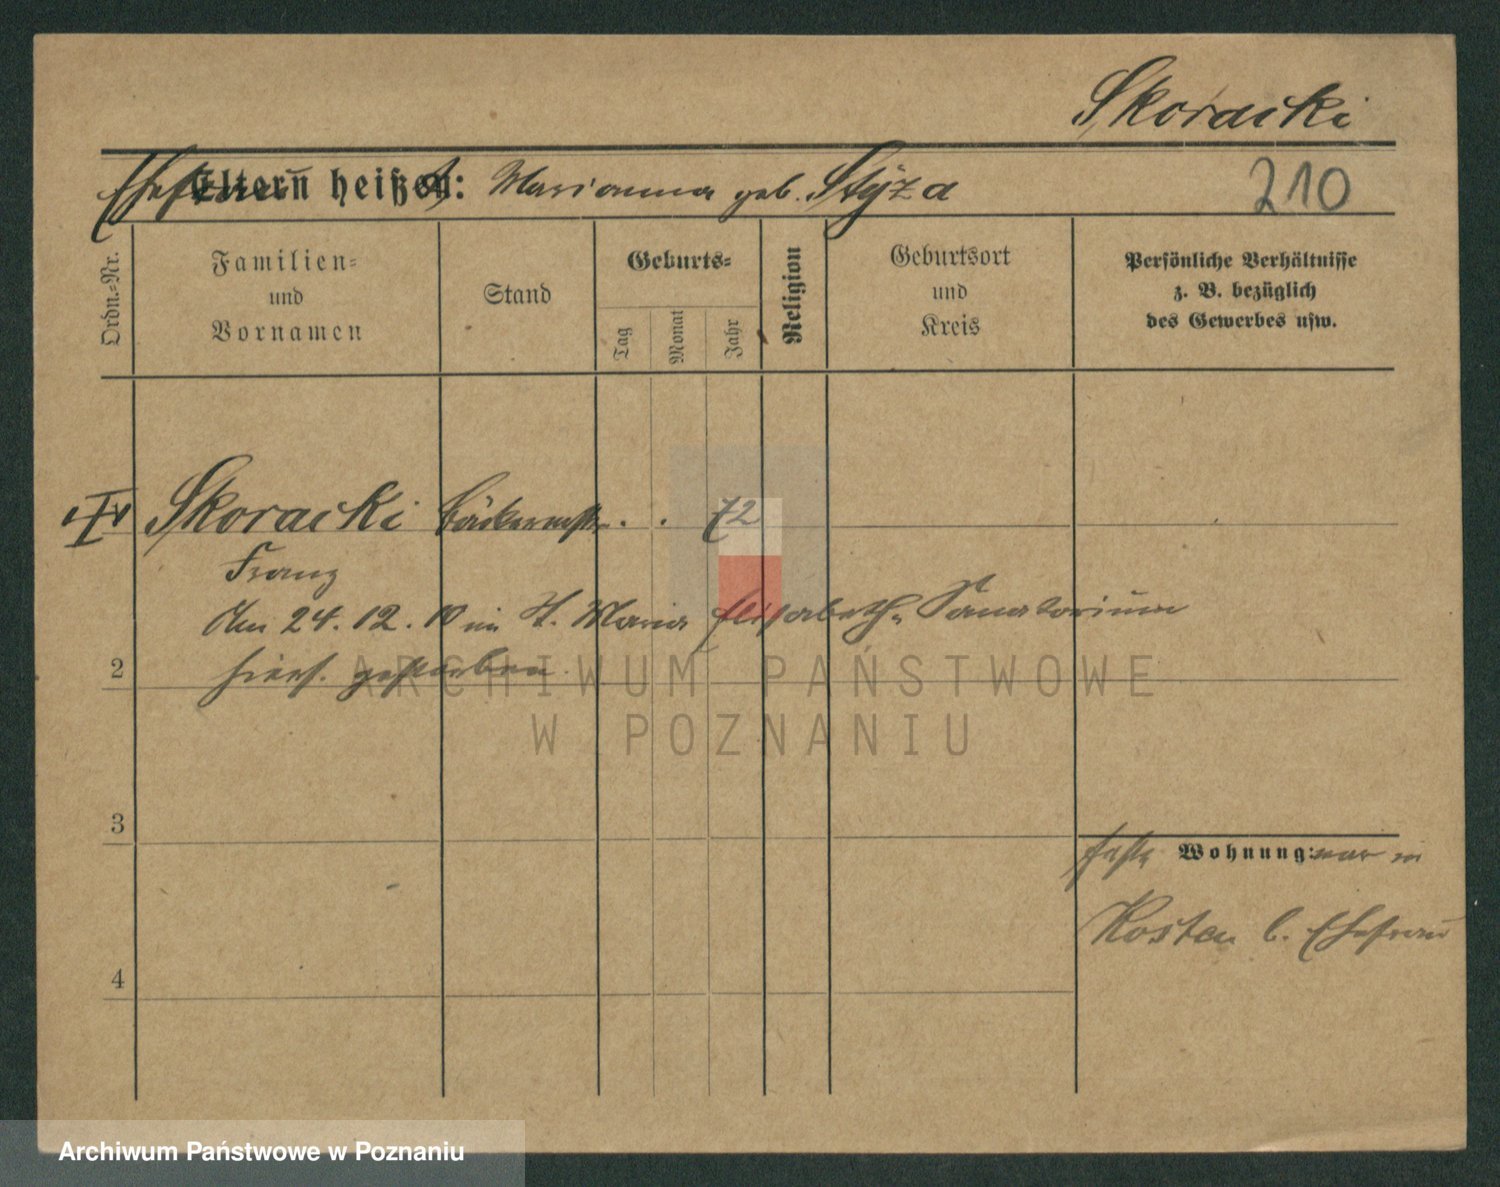 Skoracki
Ehefrau heißt: Marianna geb. Styza
210
Ordn.-Nr.
Familien-
und
Vornamen
Stand
Geburts-
Tag
Monat
Jahr
Religion
Geburtsort
und
Kreis
Persönliche Verhältnisse
z. B. bezüglich
des Gewerbes usw.
Skoracki Bäckermstr. . . 72
Franz
Am 24. 12. 10 im St. Maria Elisabeth-Sanatorium
2 hiers. gestorben.
ARCHIWUM PAŃSTWOWE
W POZNANIU
3
feste Wohnung: war in
Kosten b. Ehefrau
4
Archiwum Państwowe w Poznaniu